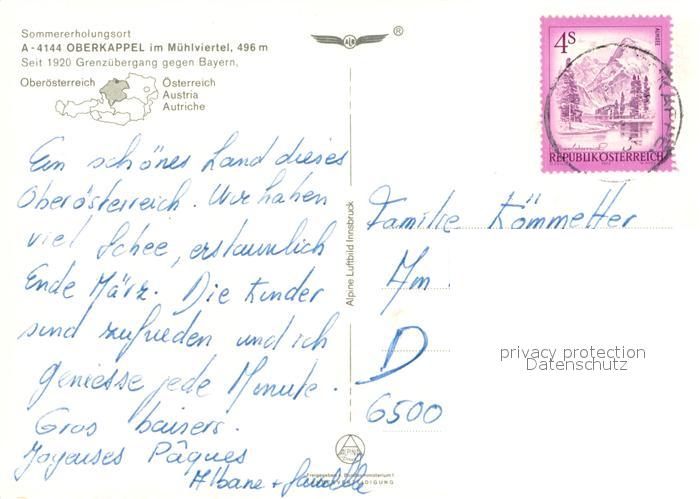 Sommererholungsort
A-4144 OBERKAPPEL im Mühlviertel, 496 m
Seit 1920 Grenzübergang gegen Bayern,
Oberösterreich
Österreich
Austria
Autriche
Ein schönes Land dieses
Oberösterreich. Wir haben
viel Schee, erstaunlich
Ende März. Die Kinder
sind zufrieden und ich
geniesse jede Minute.
Gros baisers.
Joyeuses Pâques
Albane +
Alpine Luftbild Innsbruck
®
4s
ALMSEE
REPUBLIK ÖSTERREICH
Familie Kömmetter
Am
D
6500
privacy protection
Datenschutz
ALPINE